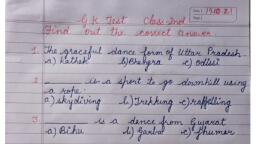 G.K Test Class 2nd
Find out the correct answer
1. The graceful dance form of Uttar Pradesh
a) kathak b) Bhangra c) odissi
2. ___ is a sport to go downhill using
a rope.
a) skydiving b) Trekking c) rappelling
3. ___ is a dence from Gujarat
a) Bihu b) Garba c) Jhumer